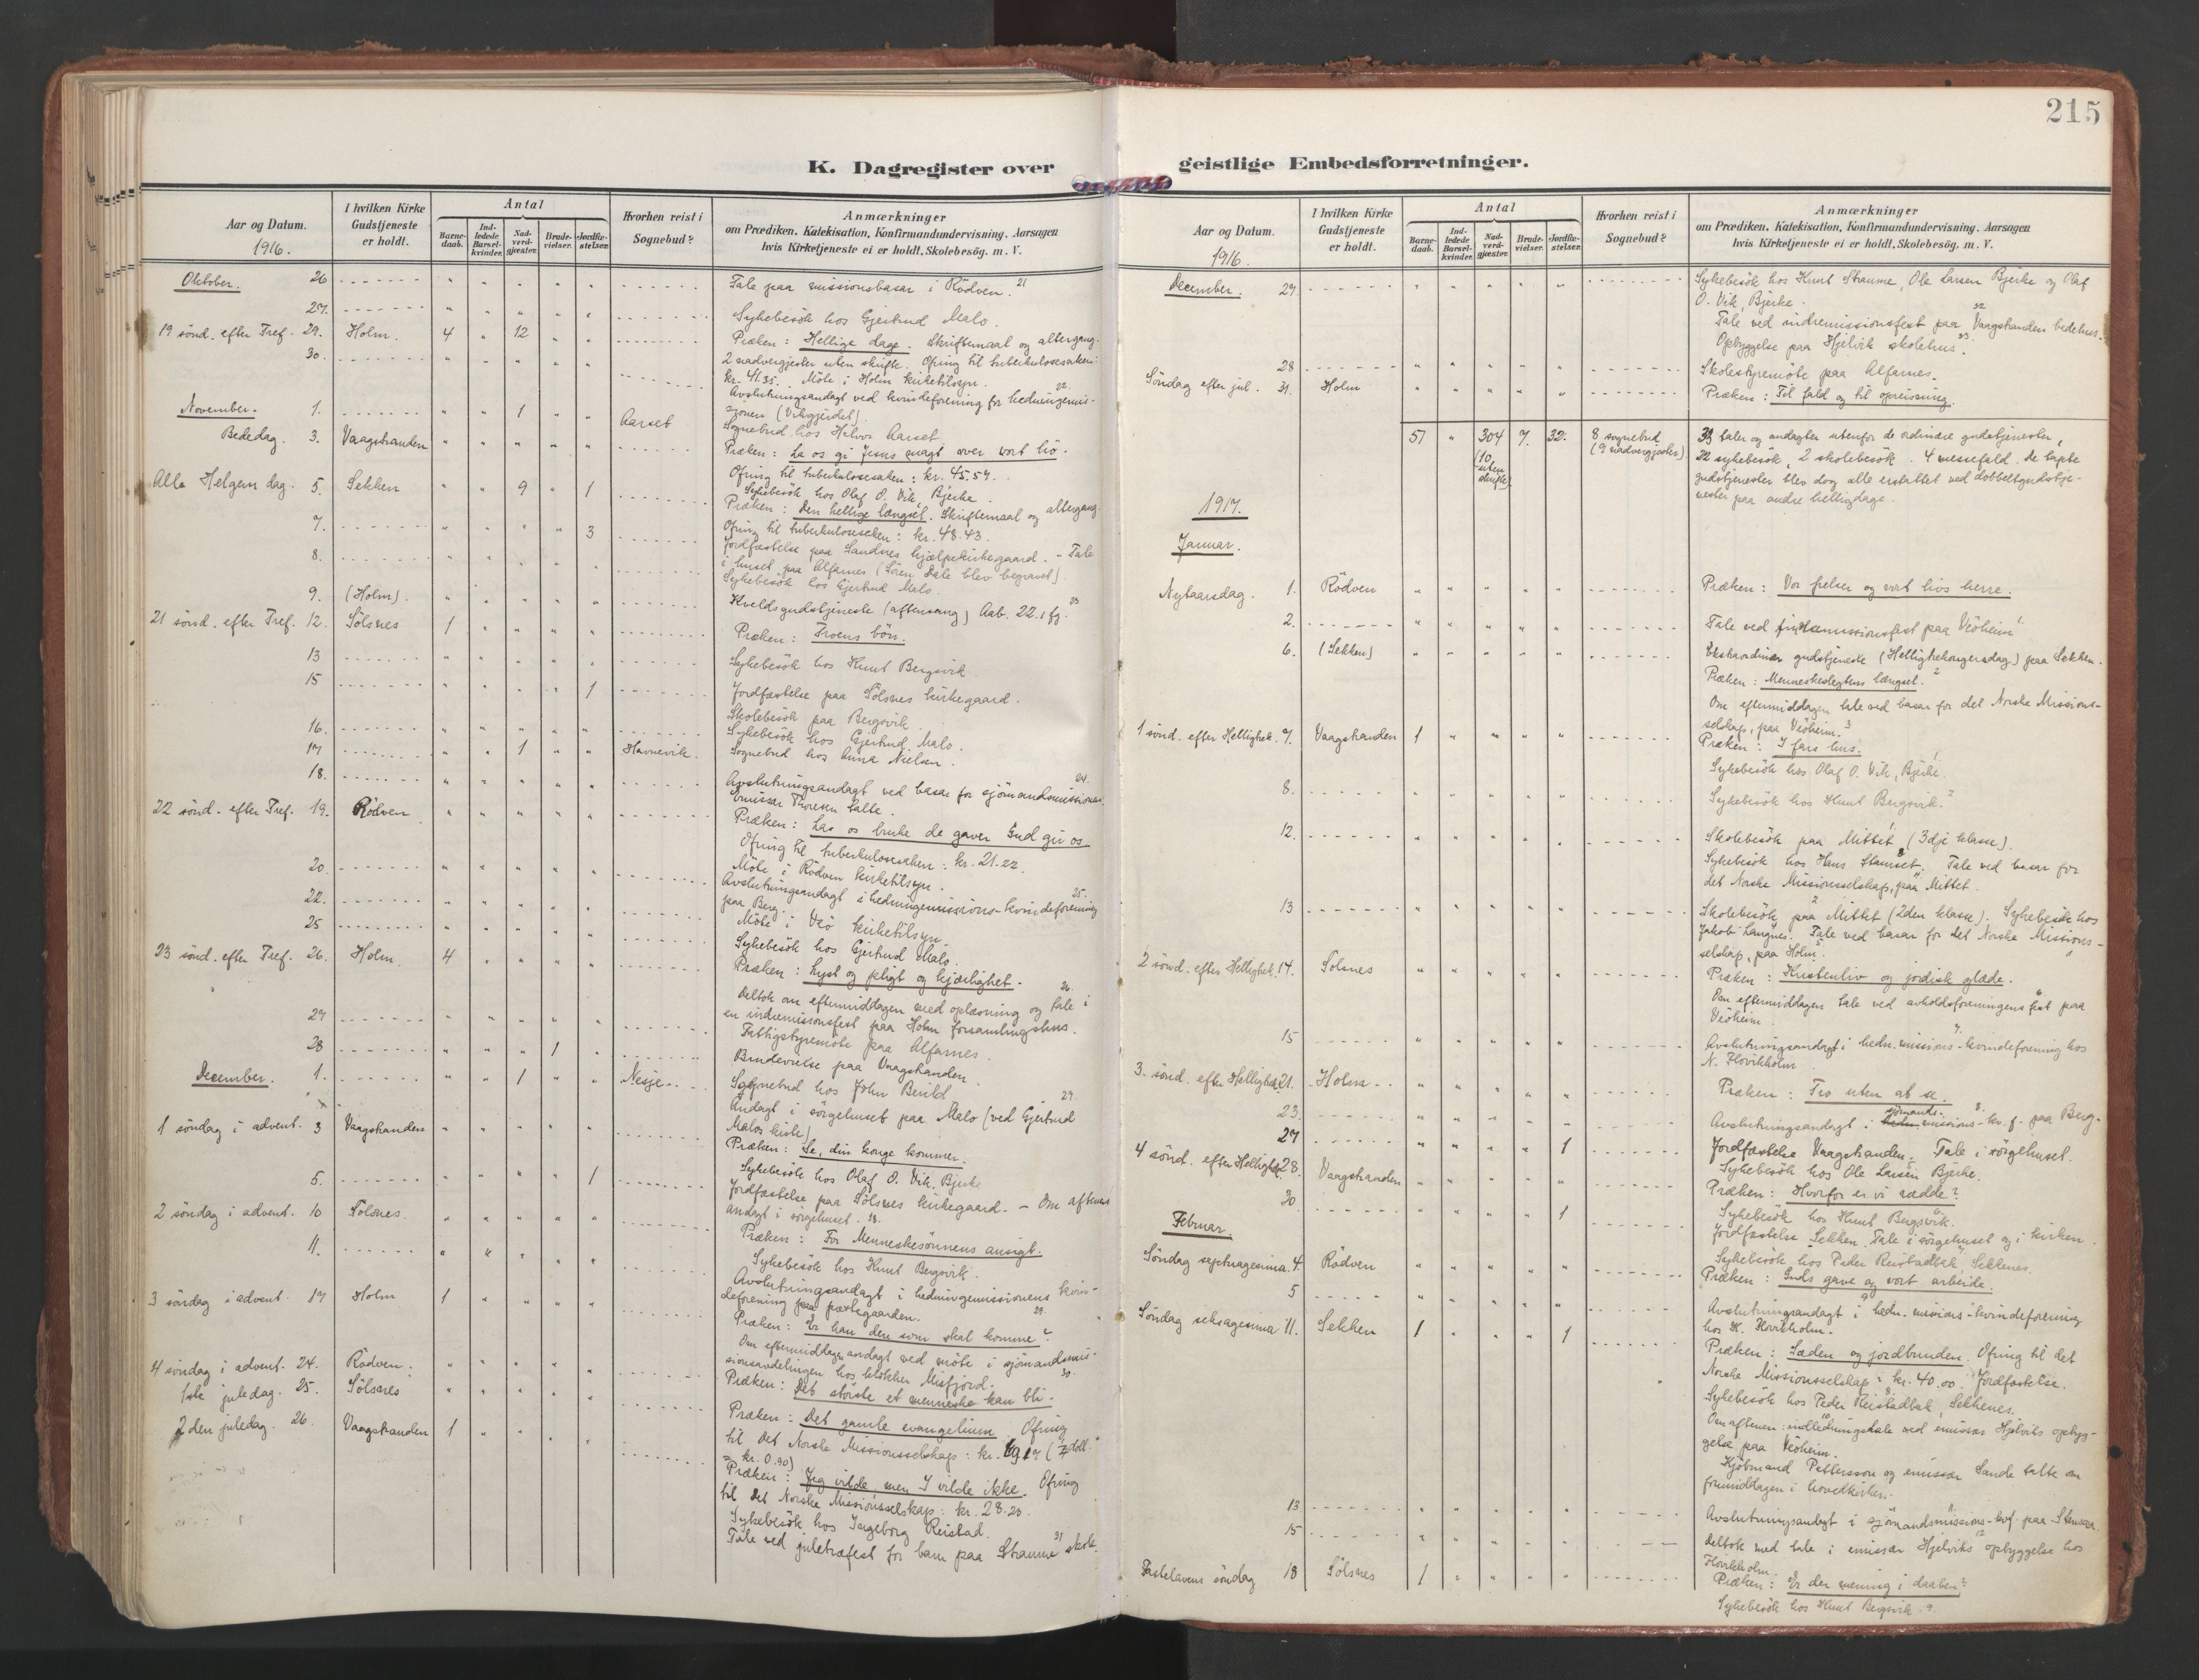 215
K. Dagregister over geistlige Embedsforretninger.
Aar og Datum.
1916.
I hvilken Kirke Gudstjeneste er holdt.
Antal
Barnedaab.
Indledede Barselkvinder.
Nadverdgjæster.
Brudevielser.
Jordfæstelser.
Hvorhen reist i Sognebud?
Anmærkninger
om Prædiken. Katekisation, Konfirmandundervisning. Aarsagen
hvis Kirketjeneste ei er holdt. Skolebesög. m. V.
Oktober. 26 Tale paa missionsbasar i Rödven. 21
27. Sykebesök hos Gjertrud Malo.
19 sönd. efter Tref. 29. Holm. 4 12 Præken: Hellige dage. Skriftemaal og altergang.
2 nadvergjester uten skrifte. Ofring til tuberkulosesaken:
kr. 41.35.
30. Möte i Holm kirketilsyn.
Avslutningsandagt ved kvindeforening for hedningemis- 22.
sjonen (Vikgjerdet).
November. 1. 1 Aarset Sognebud hos Halvor Aarset.
Bededag. 3. Vaagstranden Præken: La os gi Jesus magt over vort liv.
Ofring til tuberkulosesaken: kr. 45.57.
Sykebesök hos Olaf O. Vik, Bjerke.
Alle Helgens dag. 5. Sekken 9 1 Præken: Den hellige længsel. Skriftemaal og altergang.
Ofring til tuberkulosesaken: kr. 48.43.
7. 3 Jordfæstelse paa Sandnes hjælpekirkegaard. - Tale
i huset paa Alfarnes (Sören Dale blev begravet).
8. Sykebesök hos Gjertrud Malo.
9. (Holm). Kveldsgudstjeneste (aftensang) Aab. 22.1 fg. 23
21 sönd. efter Tref. 12. Sölsnes 1 Præken: Troens bön.
13 Sykebesök hos Knut Bergsvik
15 1 Jordfæstelse paa Sölsnes kirkegaard.
Skolebesök paa Bergsvik
16. Sykebesök hos Gjertrud Malo.
17 1 Havnevik. Sognebud hos Anna Nielsen.
18. Avslutningsandagt ved basar for sjömandsmissionen. 24.
Emissær Thoresen talte.
22 sönd. efter Tref. 19. Rödven Præken: Lar os bruke de gaver Gud gir os.
Ofring til tuberkulosesaken: kr. 21.22.
Möte i Rödven kirketilsyn.
20. Avslutningsandagt i hedningemissions-kvindeforening 25.
paa Berg.
22. Möte i Veö kirketilsyn.
25 Sykebesök hos Gjertrud Malo.
23 sönd. efter Tref. 26. Holm. 4 Præken: Lyst og pligt og kjærlighet.
Deltok om eftermiddagen med oplæsning og tale i 26.
en indremissionsfest paa Holm forsamlingshus.
27 Fattigstyremöte paa Alfarnes.
28 1 Brudevielse paa Vaagstranden.
December. 1. 1 Nesje Sognebud hos John Berild
Andagt i sörgehuset paa Malo (ved Gjertrud 27.
Malos kiste)
1 söndag i advent. 3 Vaagstranden Præken: Se, din konge kommer.
Sykebesök hos Olaf O. Vik, Bjerke
5. 1 Jordfæstelse paa Sölsnes kirkegaard. - Om aftenen
andagt i sörgehuset. 28.
2 söndag i advent. 10 Sölsnes. Præken: For Menneskesönnens ansigt.
Sykebesök hos Knut Bergsvik.
11. Avslutningsandagt i hedningemissionens kvin-
deforening paa præstegaarden. 29.
3 söndag i advent. 17 Holm 1 Præken: Er han den som skal komme?
Om eftermiddagen andagt ved möte i sjömandsmis-
sionsavdelingen hos klokker Misfjord. 30.
4 söndag i advent. 24. Rödven. Præken: Det störste et menneske kan bli.
1ste juledag. 25. Sölsnes Præken: Det gamle evangelium. Ofring
til det Norske Missionsselskap: kr.
= kr. 0.90)
2 den juledag. 26. Vaagstranden 1 Præken: Jeg vilde men I vilde ikke. Ofring
til det Norske Missionsselskap: kr. 28.20.
Sykebesök hos Ingeborg Reistad.
Tale ved juletræfest for barn paa Straume skole. 31
Aar og Datum.
1916.
I hvilken Kirke Gudstjeneste er holdt.
Antal
Barnedaab.
Indledede Barselkvinder.
Nadverdgjæster.
Brudevielser.
Jordfæstelser.
Hvorhen reist i Sognebud?
Anmærkninger
om Prædiken. Katekisation, Konfirmandundervisning. Aarsagen
hvis Kirketjeneste ei er holdt. Skolebesög. m. V.
December. 27. Sykebesök hos Knut Straume, Ole Larsen Bjerke og Olaf
O. Vik, Bjerke.
Tale ved indremissionsfest paa Vaagstranden bedehus. 32
Opbyggelse paa Hjelvik skolehus. 33
28 Skolestyremöte paa Alfarnes.
Söndag efter jul. 31. Holm Præken: Til fald og til opreisning.
51 304 7. 32. 8 sognebud 33 taler og andagter utenfor de ordinære gudstjenester,
(10 uten skrifte) (9 nadvergjester) 22 sykebesök, 2 skolebesök. 4 messefald. De tapte
gudstjenester blev dog alle erstattet ved dobbeltgudstje-
nester paa andre helligdage.
1917.
Januar.
Nytaarsdag. 1. Rödven Præken: Vor frelser og vort livs herre.
2. Tale ved indremissionsfest paa Veöheim. 1
6. (Sekken) Ekstraordinær gudstjeneste (Hellightrekongersdag) paa Sekken.
Præken: Menneskeslegtens længsel. 2
Om eftermiddagen tale ved basar for det Norske Missions-
selskap, paa Veöheim. 3
1 sönd. efter Hellightrek. 7. Vaagstranden 1 Præken: I fars hus.
Sykebesök hos Olaf O. Vik, Bjerke. 1
8. Sykebesök hos Knut Bergsvik. 2
12. Skolebesök paa Mittet (3dje klasse). 1
Sykebesök hos Hans Tale ved basar for
det Norske Missionsselskap, paa Mittet.
13 Skolebesök paa Mittet (2den klasse). Sykebesök hos
Jakob Langnes. Tale ved basar for det Norske Missions-
selskap, paa Holm.
2 sönd. efter Hellightrek. 14. Sölsnes Præken: Kristenliv og jordisk glæde.
Om eftermiddagen tale ved avholdsforeningens fest paa 6
Veöheim.
15 Avslutningsandagt i hedn. missions-kvindeforening hos 7.
N. Flovikholm
3. sönd. efter Hellightrek. 21. Holm Præken: Tro uten at se.
23. Avslutningsandagt i sjömands-missions-kv.f. paa Berg. 8.
27 1 Jordfæstelse Vaagstranden. Tale i sörgehuset.
Sykebesök hos Ole Larsen Bjerke.
4 sönd. efter Hellightrek. 28. Vaagstranden Præken: Hvorfor er vi rædde?
Sykebesök hos Knut Bergsvik. 6
30. 1 Jordfæstelse Sekken. Tale i sörgehuset og i kirken.
Sykebesök hos Peder Reistadbak, Sekkenes.
Februar.
Söndag septuagesima. 4. Rödven Præken: Guds gave og vort arbeide.
5 Avslutningsandagt i hedn. missions-kvindeforening 9
hos K.
Söndag seksagesima 11. Sekken 1 1 Præken: Sæden og jordbunden. Ofring til det
Norske Missionsselskap: kr. 40.00. Jordfæstelse.
Sykebesök hos Peder Reistadbak, Sekkenes. 8
Om aftenen indledningstale ved emissær Hjelviks opbyg- 10
gelse paa Veöheim.
Kjöbmand Pettersson og emissær Sande talte om
formiddagen i hovedkirken.
13 Avslutningsandagt i sjömandsmissions-kvf. paa 11
15 Deltok med tale i emissær Hjelviks opbyggelse hos 12
Flovikholm.
Fastelavens söndag 18 Sölsnes 1 Præken: Er der mening i daaben?
Sykebesök hos Knut Bergsvik. 9.